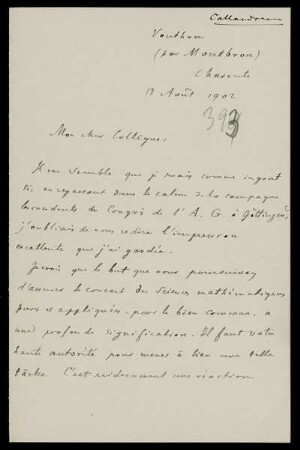 Callandreau
Vouthon
(par Montbron)
Charente
13 Août 1902
393
Mon cher Collègue,
Il me semble que je serais comme ingrat
si, en repassant dans le calme de la campagne
les incidents du Congrès de l'A. G. à Göttingen,
j'oubliais de vous redire l'impression
excellente que j'ai gardée.
Je crois que le but que vous poursuivez
d'assurer le concert des sciences mathématiques
pures et appliquées, pour le bien commun, a
une profonde signification. Il faut votre
haute autorité pour mener à bien une telle
tâche. C'est évidemment une réaction